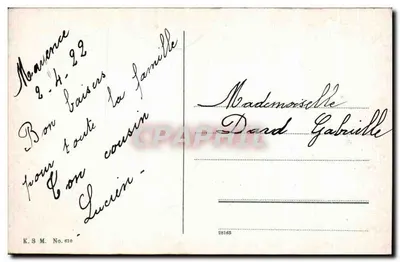 Mayence
2-4-22
Bon baisers
pour toute la famille
Ton cousin
- Lucien -
Mademoiselle
Dard Gabrielle
K. S M. No. 619
CPAphil.com